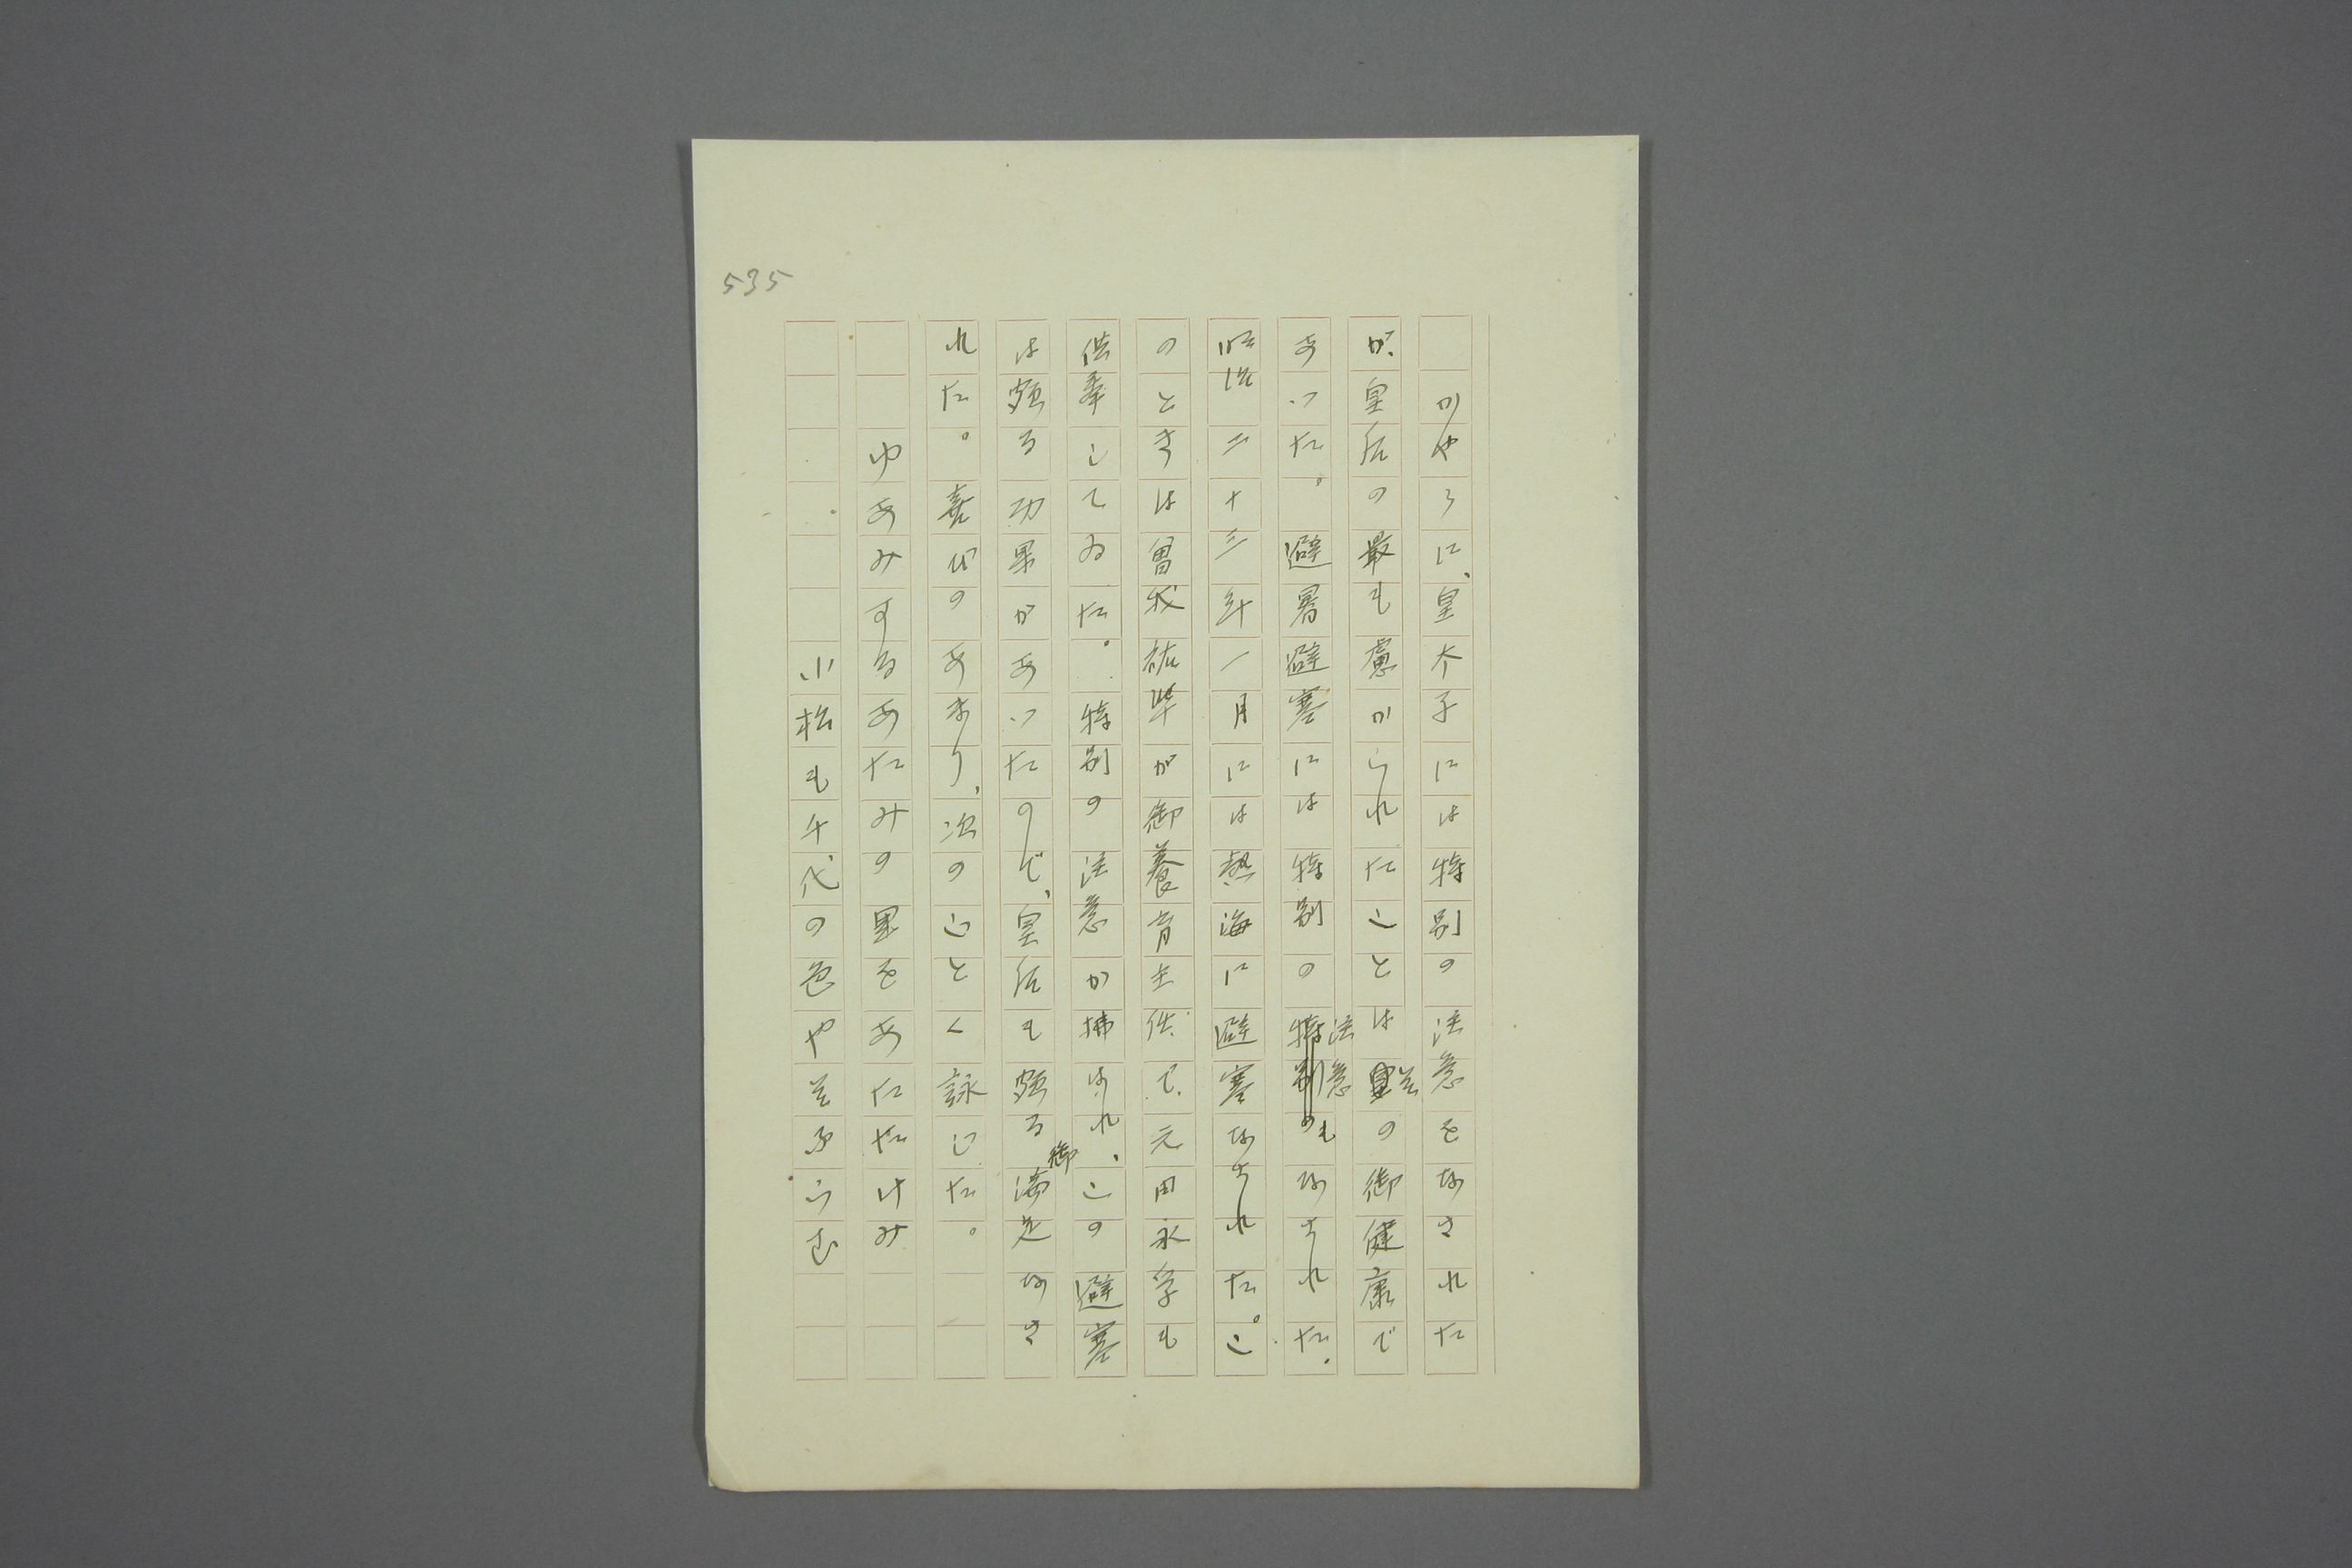 535
かやうに、皇太子には特別の注意をなされた
が、皇后の最も慮かられたことは皇子の御健康で
あつた。避暑避寒には特別の注意もなされた。
明治二十三年一月には熱海に避寒なされた。こ
のときは曽我祐準が御養育主任で、元田永孚も
供奉してゐた。特別の注意が拂はれ、この避寒
は頗る功果があつたので、皇后も頗る御満足なさ
れた。喜びのあまり、次のごとく詠じた。
ゆあみするあたみの里をあたたけみ
小松も千代の色やそふらむ